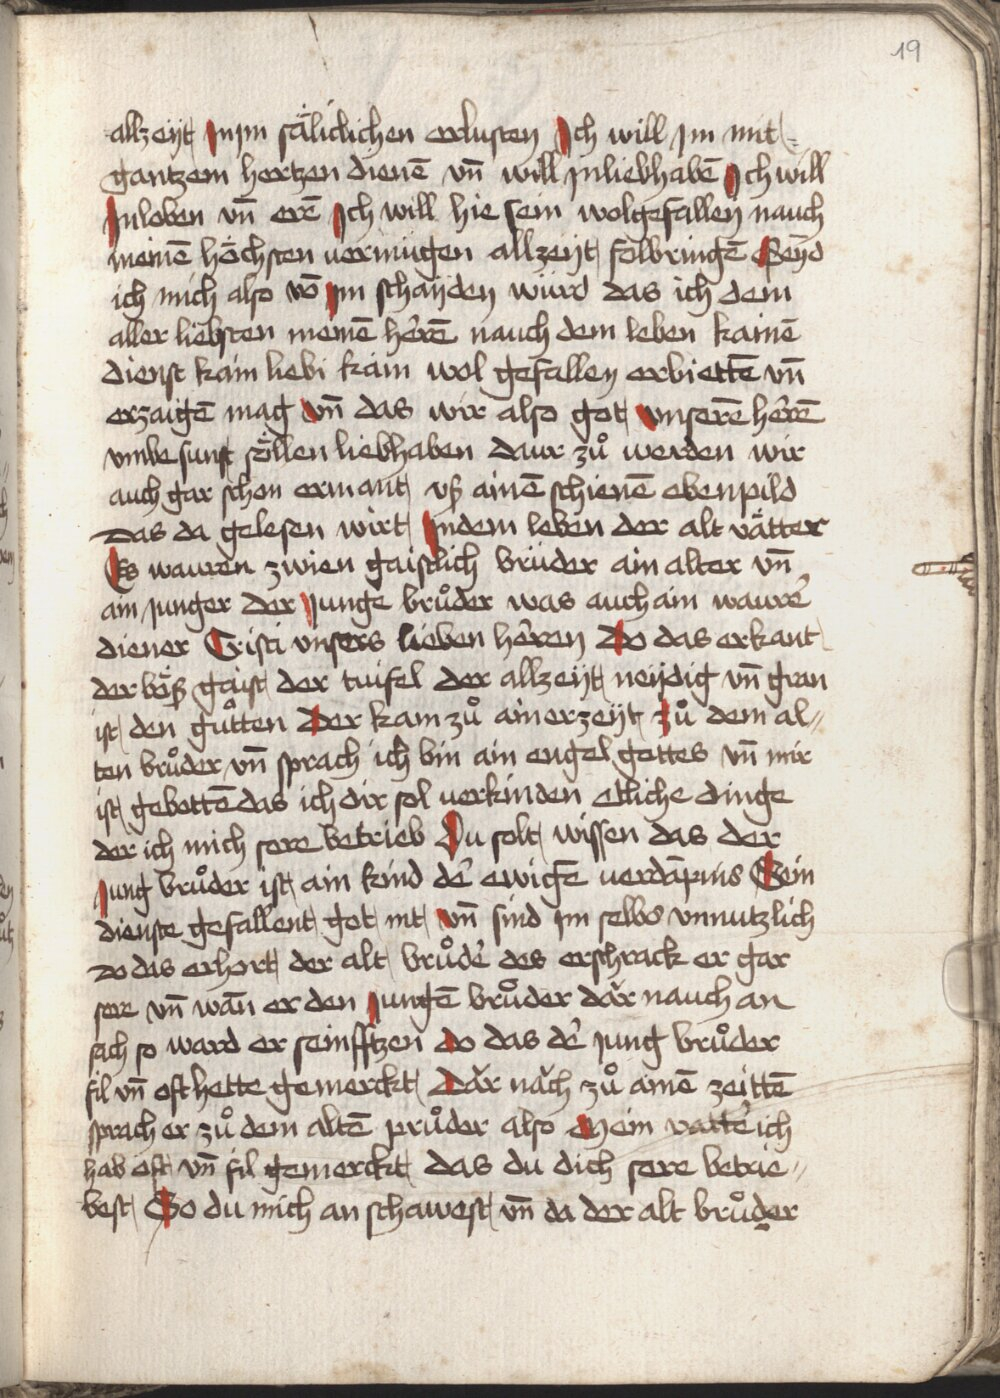 19
allzeyt Jn jm sälicklichen erlusten Jch will jm mit
gantzem hertzen dienē vn̄ will jn liebhabē Jch will
Jn loben vn̄ erē Jch will hie sein wolgefallen nauch
meinē höchsten uermügen allzeyt folbringē Seyd
ich mich also vō jm schayden würd das ich dem
aller liebsten meinē herrē nauch dem leben kainē
dienst kain liebi kain wol gefallen erbiettē vn̄
erzaigē mag Vn̄ das wir also got vnserē herrē
vmbe sunst söllen liebhaben daur zů werden wir
auch gar schon ermant vß ainē schienē ebenpild
Das da gelesen wirt Jn dem leben der alt vätter
Es wauren zwien gaistlich brüder ain alter vn̄
ain junger der Junge brůder was auch ain waurer
diener Cristi vnsers lieben herren Do das erkant
der böß gaist der tuifel der allzeyt neydig vn̄ gran
ist den gůtten Der kam zů ainer zeyt zů dem al//
ten brůder vn̄ sprach ich bin ain engel gottes vn̄ mir
ist gebottē das ich dir sol uerkinden etliche dinge
der ich mich sere betrieb Du solt wissen das der
Jung brůder ist ain kind der ewigē uerdāpnis Sein
dienste gefallent got nit vn̄ sind jm selbs vnnutzlich
Do das erhort der alt brůder des erschrack er gar
sere vn̄ wān er den Jungē brůder dar nauch an
sach so ward er seinfftzen do das der jung brůder
fil vn̄ oft hette gemerckt Dar nach zů ainē zeittē
sprach er zů dem altē průder also Mein vatter ich
hab oft vn̄ fil gemerckt das du dich sere betrie//
best So du mich an schawest vn̄ da der alt brůder